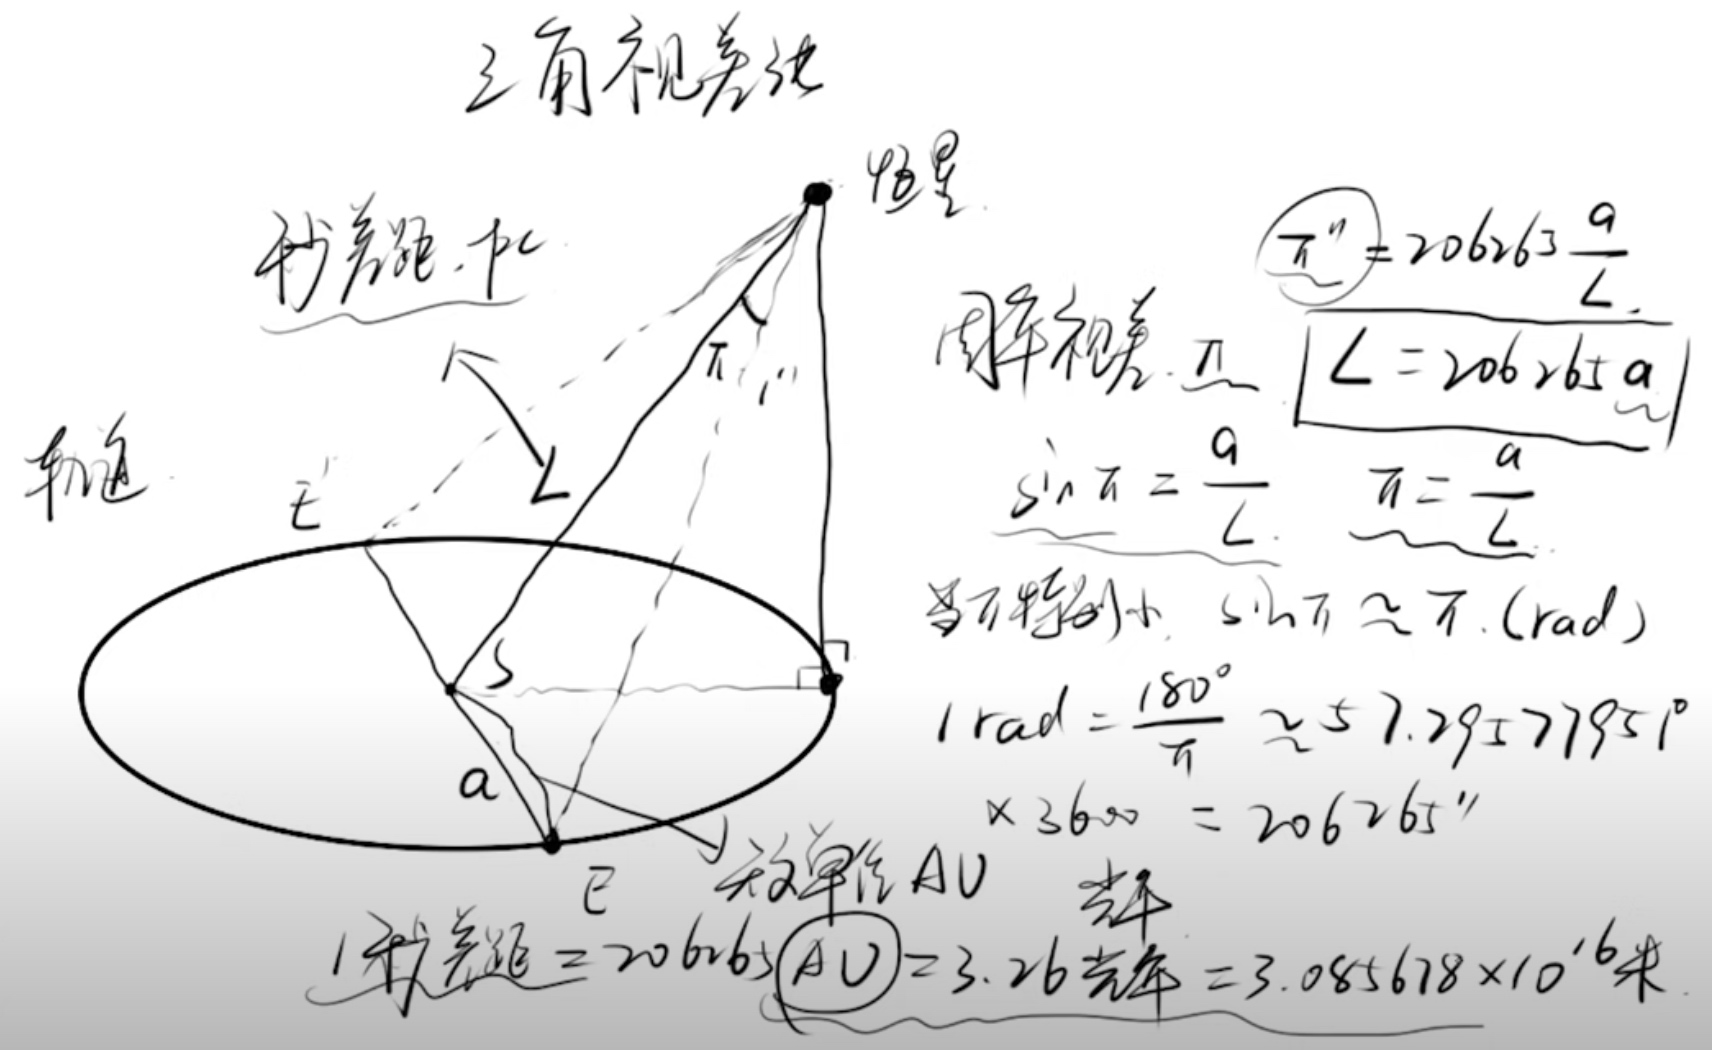 三角视差法
恒星
秒差距.pc
π" = 206263 a/L
周年视差.π
L = 206265a
π 1"
L
轨道
E'
sin π = a/L π = a/L
当π特别小 sinπ ≈ π.(rad)
S
1 rad = 180°/π ≈ 57.29577951°
a
×3600 = 206265"
E
天文单位AU
光年
1秒差距 = 206265 AU = 3.26光年 = 3.085678×10¹⁶米